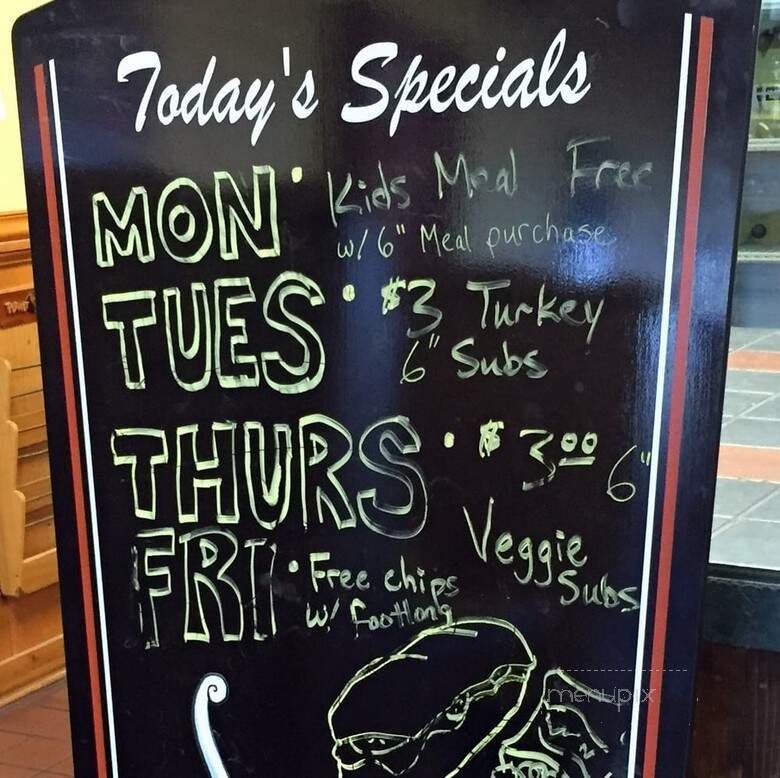 Today's Specials
MON • Kids Meal Free
w/ 6" Meal purchase
TUES • $3 Turkey
6" Subs
THURS • $3.00 6"
Veggie
Subs
FRI • Free chips
w/ footlong
menupix